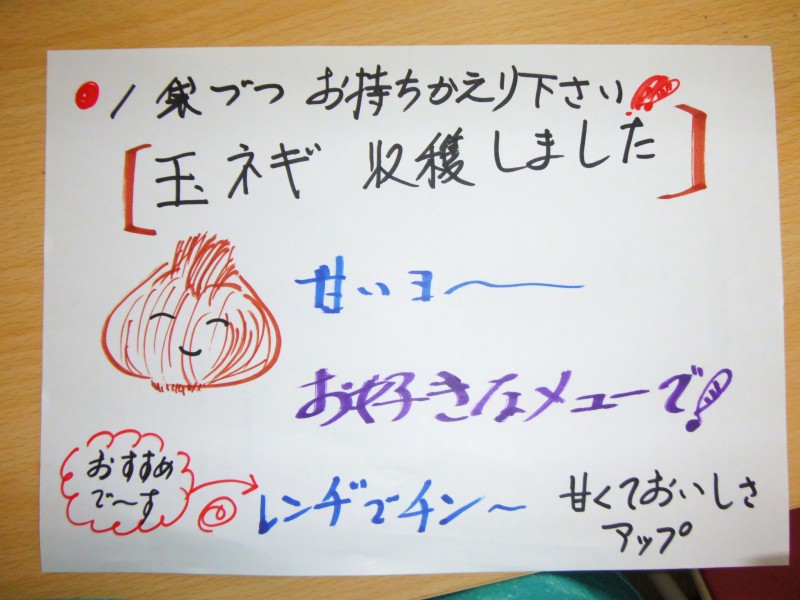 1袋づつ お持ちかえり下さい!
[玉ネギ 収穫しました]
甘いヨ〜
お好きなメニューで!
おすすめ
で〜す
レンヂでチン〜
甘くておいしさ
アップ